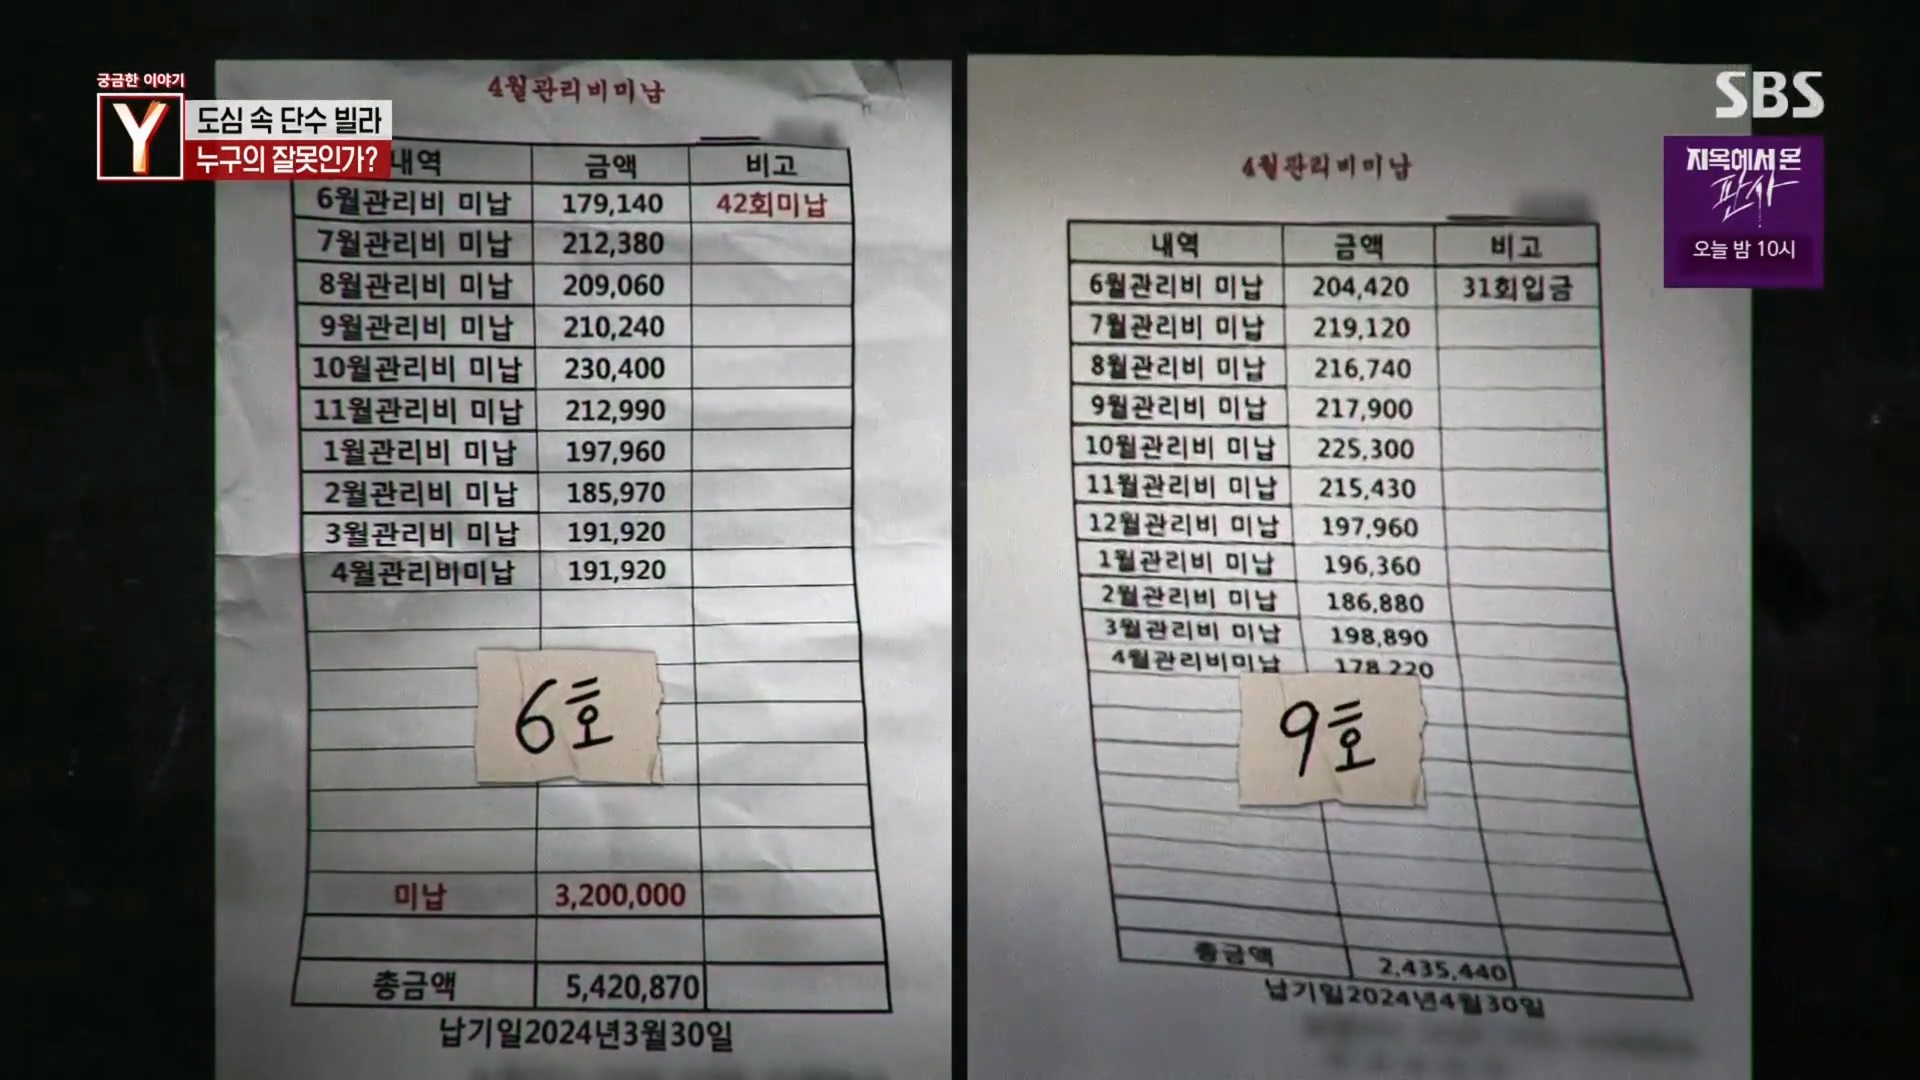 궁금한 이야기
Y
도심 속 단수 빌라
누구의 잘못인가?
SBS
지옥에서 온
판사
오늘 밤 10시
4월관리비미납
내역 금액 비고
6월관리비 미납 179,140 42회미납
7월관리비 미납 212,380
8월관리비 미납 209,060
9월관리비 미납 210,240
10월관리비 미납 230,400
11월관리비 미납 212,990
1월관리비 미납 197,960
2월관리비 미납 185,970
3월관리비 미납 191,920
4월관리비미납 191,920
6호
미납 3,200,000
총금액 5,420,870
납기일2024년3월30일
4월관리비미납
내역 금액 비고
6월관리비 미납 204,420 31회입금
7월관리비 미납 219,120
8월관리비 미납 216,740
9월관리비 미납 217,900
10월관리비 미납 225,300
11월관리비 미납 215,430
12월관리비 미납 197,960
1월관리비 미납 196,360
2월관리비 미납 186,880
3월관리비 미납 198,890
4월관리비미납 178,220
9호
총금액 2,435,440
납기일2024년4월30일